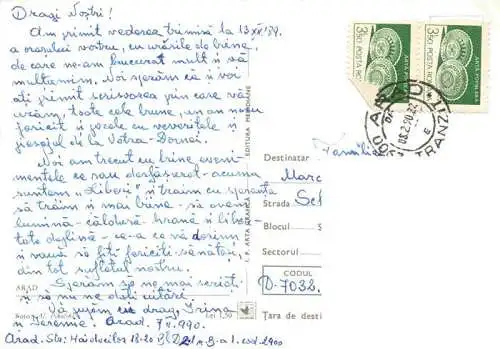 Dragi Noștri!
Am primit vederea trimisă la 13 XII '89.
a orașului vostru, cu urările de bine,
de care ne-am bucurat mult și să
mulțumim. Noi sperăm ca și voi
ați primit scrisoarea prin care vă
urăm, toate cele bune, un an nou
fericit și jocale cu veverițele și
peisajul de la Vatra-Dornei.
Noi am trecut cu bine eveni-
mentele ce sau desfășurat - acuma
suntem "Liberi" și trăim cu speranța
să trăim și mai bine - să avem
lumină - căldură - hrană și liber-
tate deplină - ceea ce vă dorim
și vouă să fiți fericiți sănătoși
din tot sufletul nostru.
Sperăm să ne mai scrieți
și să nu ne dați uitării.
Vă pupăm cu drag, Irina
și Ieremie. Arad. 7 II. 990.
Arad. Str. Haiducilor 18-20 cod 2900
ARAD
Lei 1,50
EDITURA MERIDIANE
I. P. ARTA GRAFICĂ
3,50 POSTA RO
3,50 POSTA RO
ARTA POPULARA
ARAD
TRANZIT
Destinatar
Familia
Marc
Strada
Blocul
Sectorul
CODUL
D-7032
Țara de desti